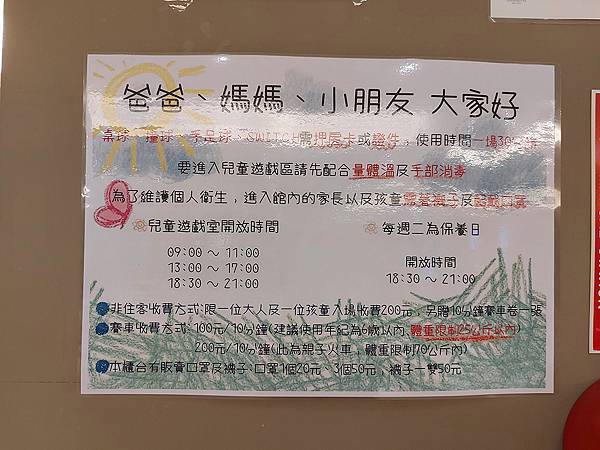 爸爸、媽媽、小朋友 大家好
桌球、撞球、手足球、SWITCH需押房卡或證件，使用時間一場30分鐘
要進入兒童遊戲區請先配合量體溫及手部消毒
為了維護個人衛生，進入館內的家長以及孩童需著襪子及配戴口罩
兒童遊戲室開放時間
09:00 ～ 11:00
13:00 ～ 17:00
18:30 ～ 21:00
每週二為保養日
開放時間
18:30 ～ 21:00
非住客收費方式:限一位大人及一位孩童入場收費200元，另贈10分鐘賽車卷一張
賽車收費方式：100元/10分鐘(建議使用年紀為6歲以內、體重限制25公斤以內)
200元/10分鐘(此為親子火車，體重限制70公斤內)
本櫃台有販賣口罩及襪子:口罩1個20元、3個50元，襪子一雙50元